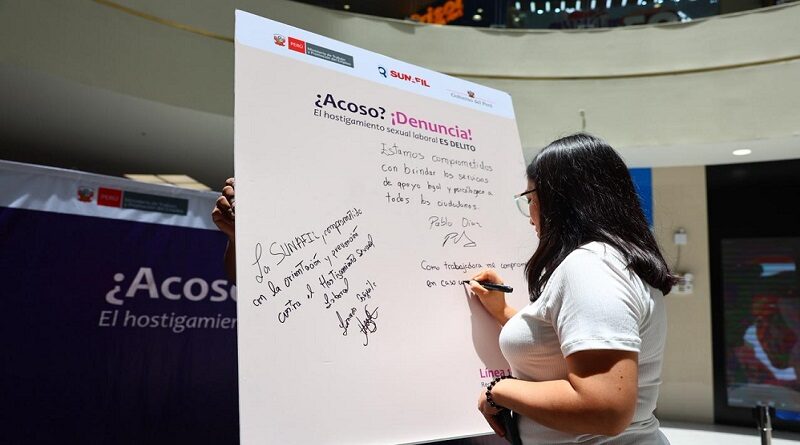 PERÚ
Ministerio de Trabajo
y Promoción del Empleo
SUNAFIL
Gobierno del Perú
¿Acoso? ¡Denuncia!
El hostigamiento sexual laboral ES DELITO
Estamos comprometidos
con brindar los servicios
de apoyo legal y psicológico a
todos los ciudadanos.
Pablo Díaz
La SUNAFIL, comprometida
con la orientación y prevención
contra el Hostigamiento Sexual
laboral
Como trabajadora me comprom
en caso
Línea
PERÚ
¿Acos
El hostigamien